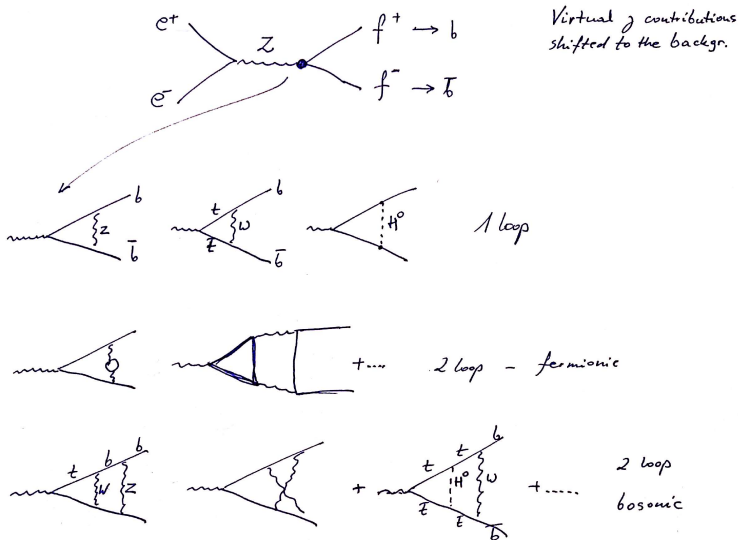 Virtual γ contributions
shifted to the backgr.
e+
e-
Z
f+ → b
f- → b̄
b
Z
b̄
t
b
W
t̄
b̄
H⁰
1 loop
+....
2 loop - fermionic
t
b
b
W
Z
+
t
t
b
H⁰
W
t̄
t̄
b̄
+.....
2 loop
bosonic